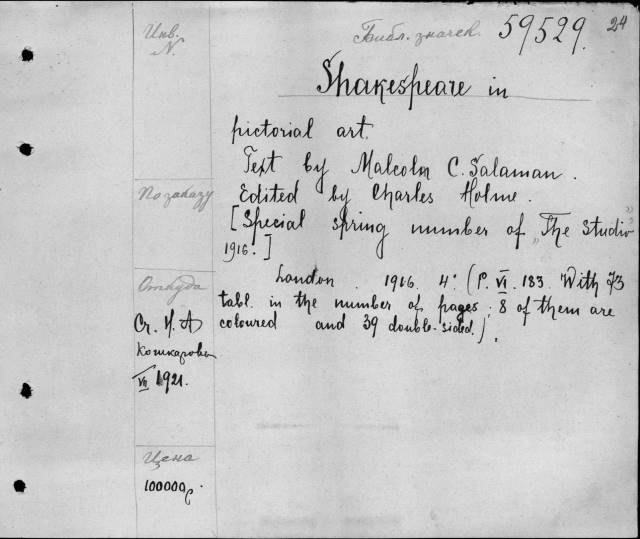 Инв.
N.
Библ. значек.
59529.
24
Shakespeare in
pictorial art.
Text by Malcolm C. Salaman.
По заказу
Edited by Charles Holme.
[Special spring number of „The Studio"
1916.]
Откуда
London. 1916. 4: (P. VI. 183. With 73
tabl. in the number of pages; 8 of them are
coloured and 39 double-sided.).
От И. А
Кошкарова
VI 1921.
Цена
100000 р.